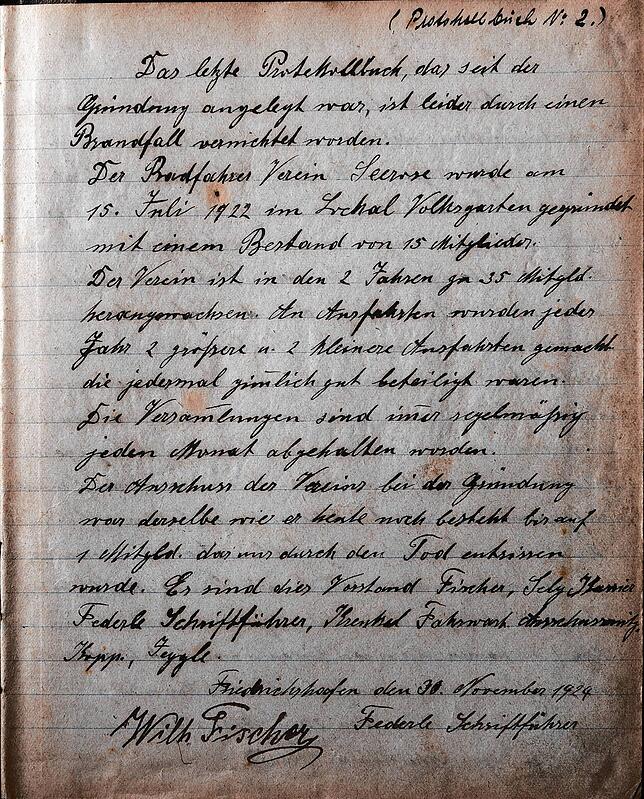 ( Protokollbuch No 2.)
Das letzte Protokollbuch, das seit der
Gründung angelegt war, ist leider durch einen
Brandfall vernichtet worden.
Der Radfahrer Verein Seerose wurde am
15. Juli 1922 im Lockal Volksgarten gegründet
mit einem Bestand von 15 Mitglieder.
Der Verein ist in den 2 Jahren zu 35 Mitgld.
herangewachsen. An Ausfahrten wurden jedes
Jahr 2 größere u. 2 kleinere Ausfahrten gemacht
die jedesmal zimlich gut beteiligt waren.
Die Versam̅lungen sind im̅er regelmäßig
jeden Monat abgehalten worden.
Der Ausschuss des Vereins bei der Gründung
war derselbe wie er heute noch besteht bis auf
1 Mitgld. das uns durch den Tod entrissen
wurde. Es sind dies Vorstand Fischer,
Federle Schriftführer, Krenkel Fahrwart
Kopp, Zeggle.
Friedrichshafen den 30. November 1924
Wilh Fischer
Federle Schriftführer